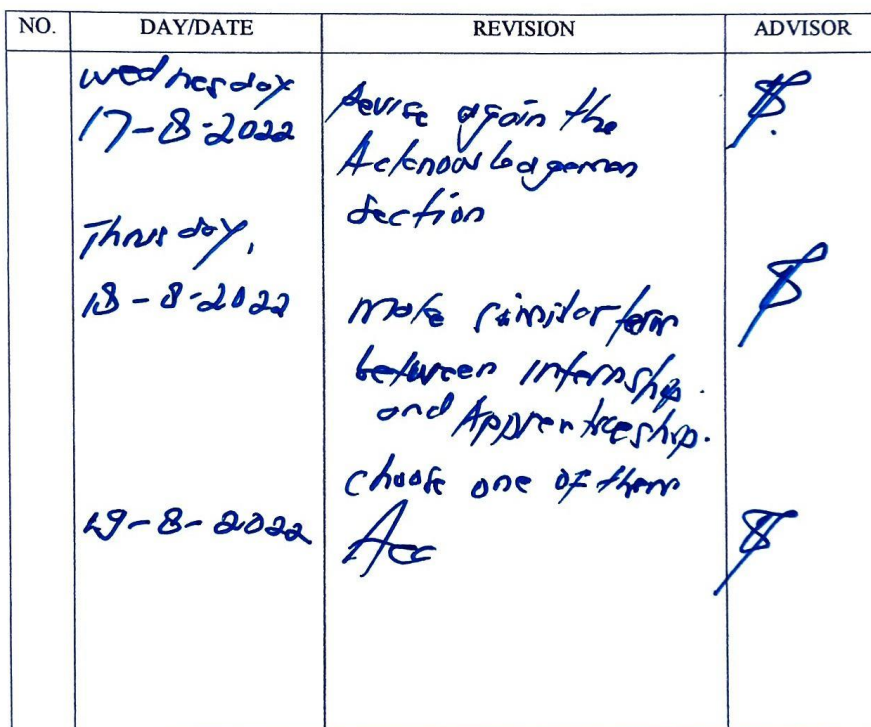 NO. DAY/DATE REVISION ADVISOR
Wednesday
17-8-2022
Revise again the
Acknowledgemen
Section
Thursday,
18-8-2022
Make similar term
between Internship
and Apprenticeship.
choose one of them
19-8-2022 Acc